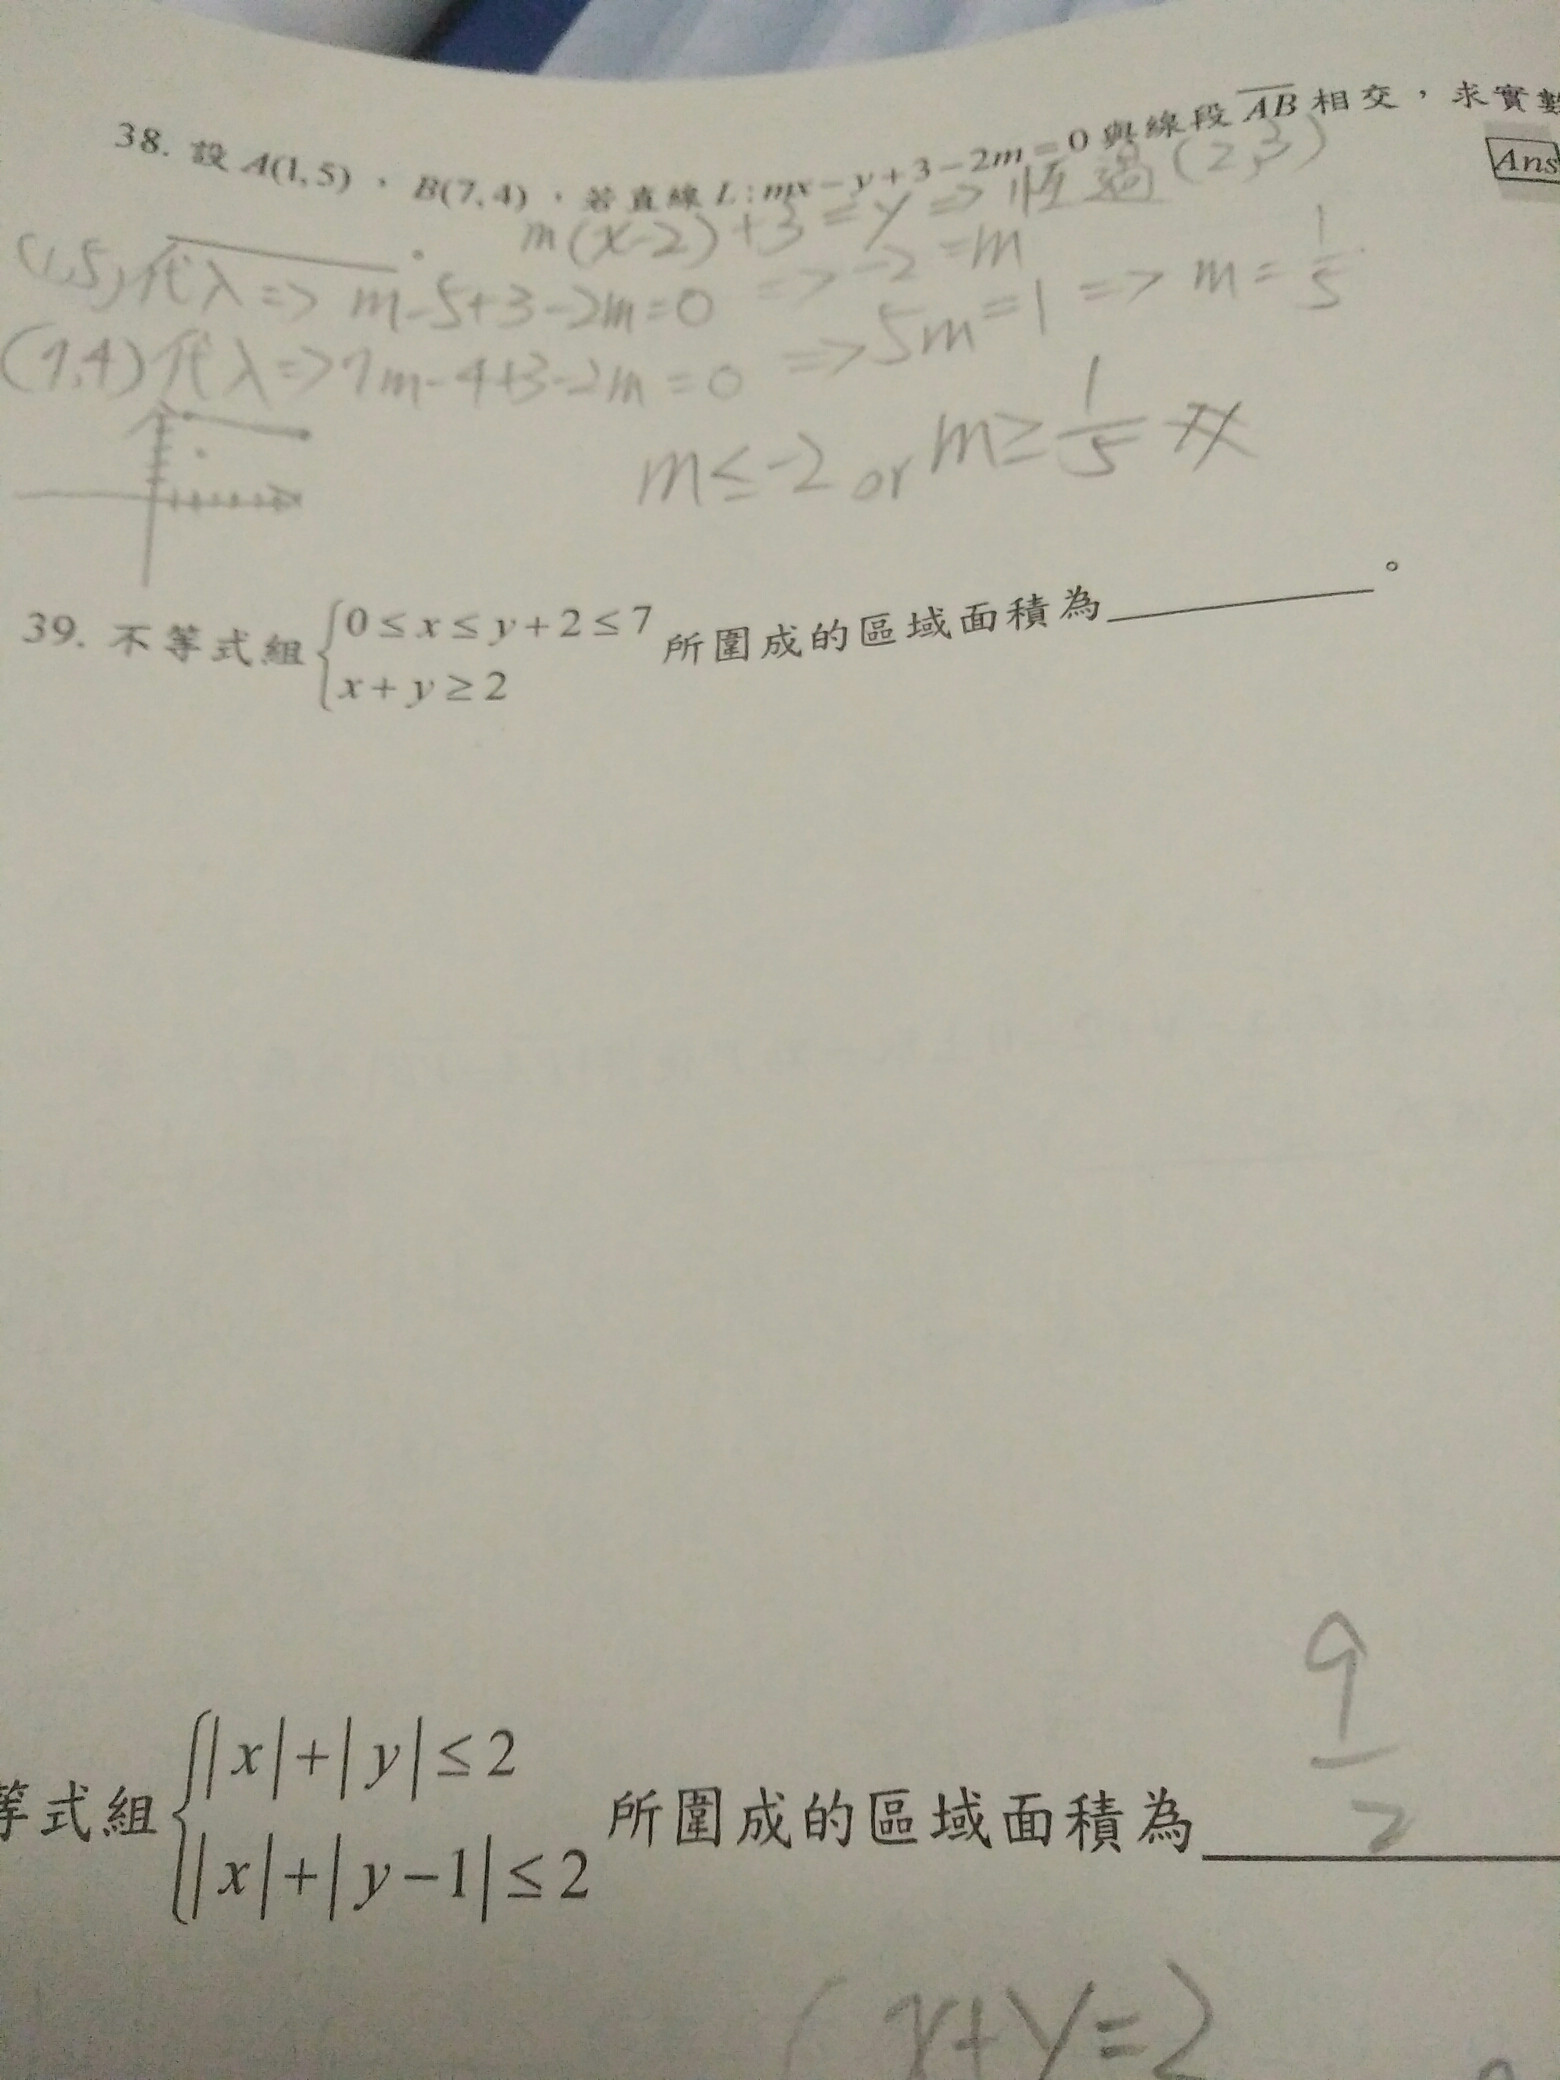 38. 設 A(1,5)，B(7,4)，若直線 L:mx-y+3-2m=0 與線段 AB 相交，求實數
Ans
m(x-2)+3=y => 恆過(2,3)
(1,5)代入=> m-5+3-2m=0 => -2=m
(7,4)代入=>7m-4+3-2m=0 =>5m=1 => m=1/5
m≤-2 or m≥1/5
39. 不等式組{0≤x≤y+2≤7 所圍成的區域面積為________。
x+y≥2
9/2
等式組{|x|+|y|≤2 所圍成的區域面積為________
|x|+|y-1|≤2
(x+y=2